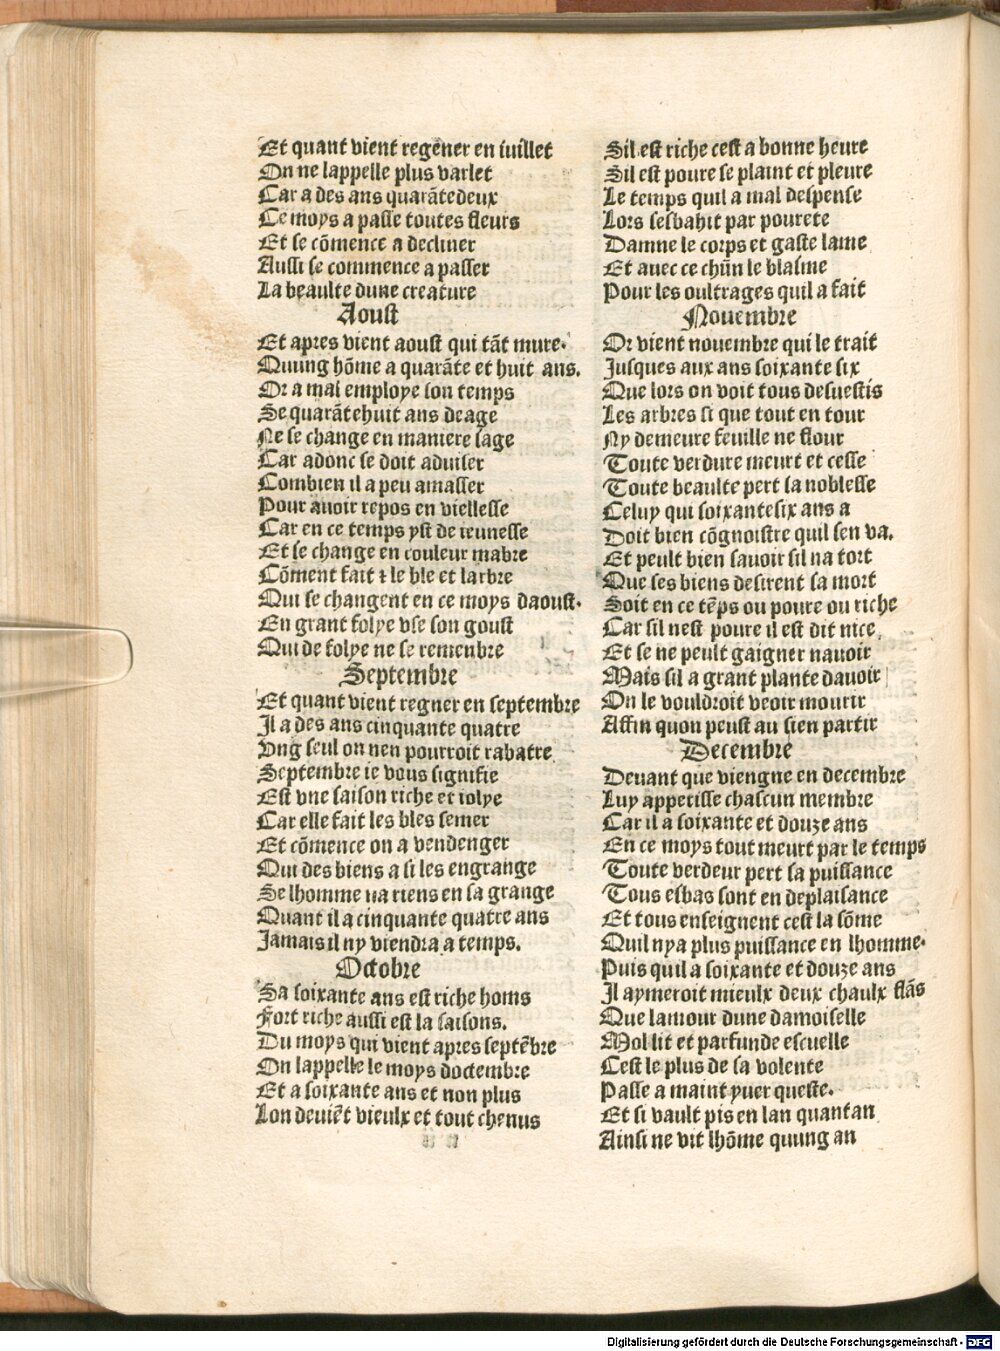 Et quant vient regẽner en iuillet
On ne lappelle plus varlet
Car a des ans quarãtedeux
Ce moys a passe toutes fleurs
Et se cõmence a decliner
Aussi se commence a passer
La beaulte dune creature
Aoust
Et apres vient aoust qui tãt mure.
Quung hõme a quarãte et huit ans.
Or a mal employe son temps
Se quarãtehuit ans de age
Ne se change en maniere sage
Car adonc se doit aduiser
Combien il a peu amasser
Pour auoir repos en viellesse
Car en ce temps yst de ieunesse
Et se change en couleur mabre
Cõment fait ⁊ le ble et larbre
Qui se changent en ce moys daoust.
En grant folye vse son goust
Qui de folye ne se remenbre
Septembre
Et quant vient regner en septembre
Il a des ans cinquante quatre
Vng seul on nen pourroit rabatre
Septembre ie vous signifie
Est vne saison riche et iolye
Car elle fait les bles semer
Et cõmence on a vendenger
Qui des biens a si les engrange
Se lhomme na riens en sa grange
Quant il a cinquante quatre ans
Jamais il ny viendra a temps.
Octobre
Sa soixante ans est riche homs
Fort riche aussi est la saisons.
Du moys qui vient apres septẽbre
On lappelle le moys doctembre
Et a soixante ans et non plus
Lon deuiẽt vieulx et tout chenus
Sil est riche cest a bonne heure
Sil est poure se plaint et pleure
Le temps quil a mal despense
Lors sesbahit par pourete
Damne le corps et gaste lame
Et auec ce chũn le blasme
Pour les oultrages quil a fait
Nouembre
Or vient nouembre qui le trait
Jusques aux ans soixante six
Que lors on voit tous desuestis
Les arbres si que tout en tour
Ny demeure feuille ne flour
Toute verdure meurt et cesse
Toute beaulte pert sa noblesse
Celuy qui soixantesix ans a
Doit bien cõgnoistre quil sen va.
Et peult bien sauoir sil na tort
Que ses biens desirent sa mort
Soit en ce tẽps ou poure ou riche
Car sil nest poure il est dit nice
Et se ne peult gaigner nauoir
Mais sil a grant plante dauoir
On le vouldroit veoir mourir
Affin quon peust au sien partir
Decembre
Deuant que viengne en decembre
Luy apperisse chascun membre
Car il a soixante et douze ans
En ce moys tout meurt par le temps
Toute verdeur pert sa puissance
Tous esbas sont en deplaisance
Et tous enseignent cest la sõme
Quil nya plus puissance en lhomme.
Puis quil a soixante et douze ans
Il aymeroit mieulx deux chaulx flãs
Que lamour dune damoiselle
Mol lit et parfunde escuelle
Cest le plus de sa volente
Passe a maint yuer queste.
Et si vault pis en lan quantan
Ainsi ne vit lhõme quung an
Digitalisierung gefördert durch die Deutsche Forschungsgemeinschaft - DFG